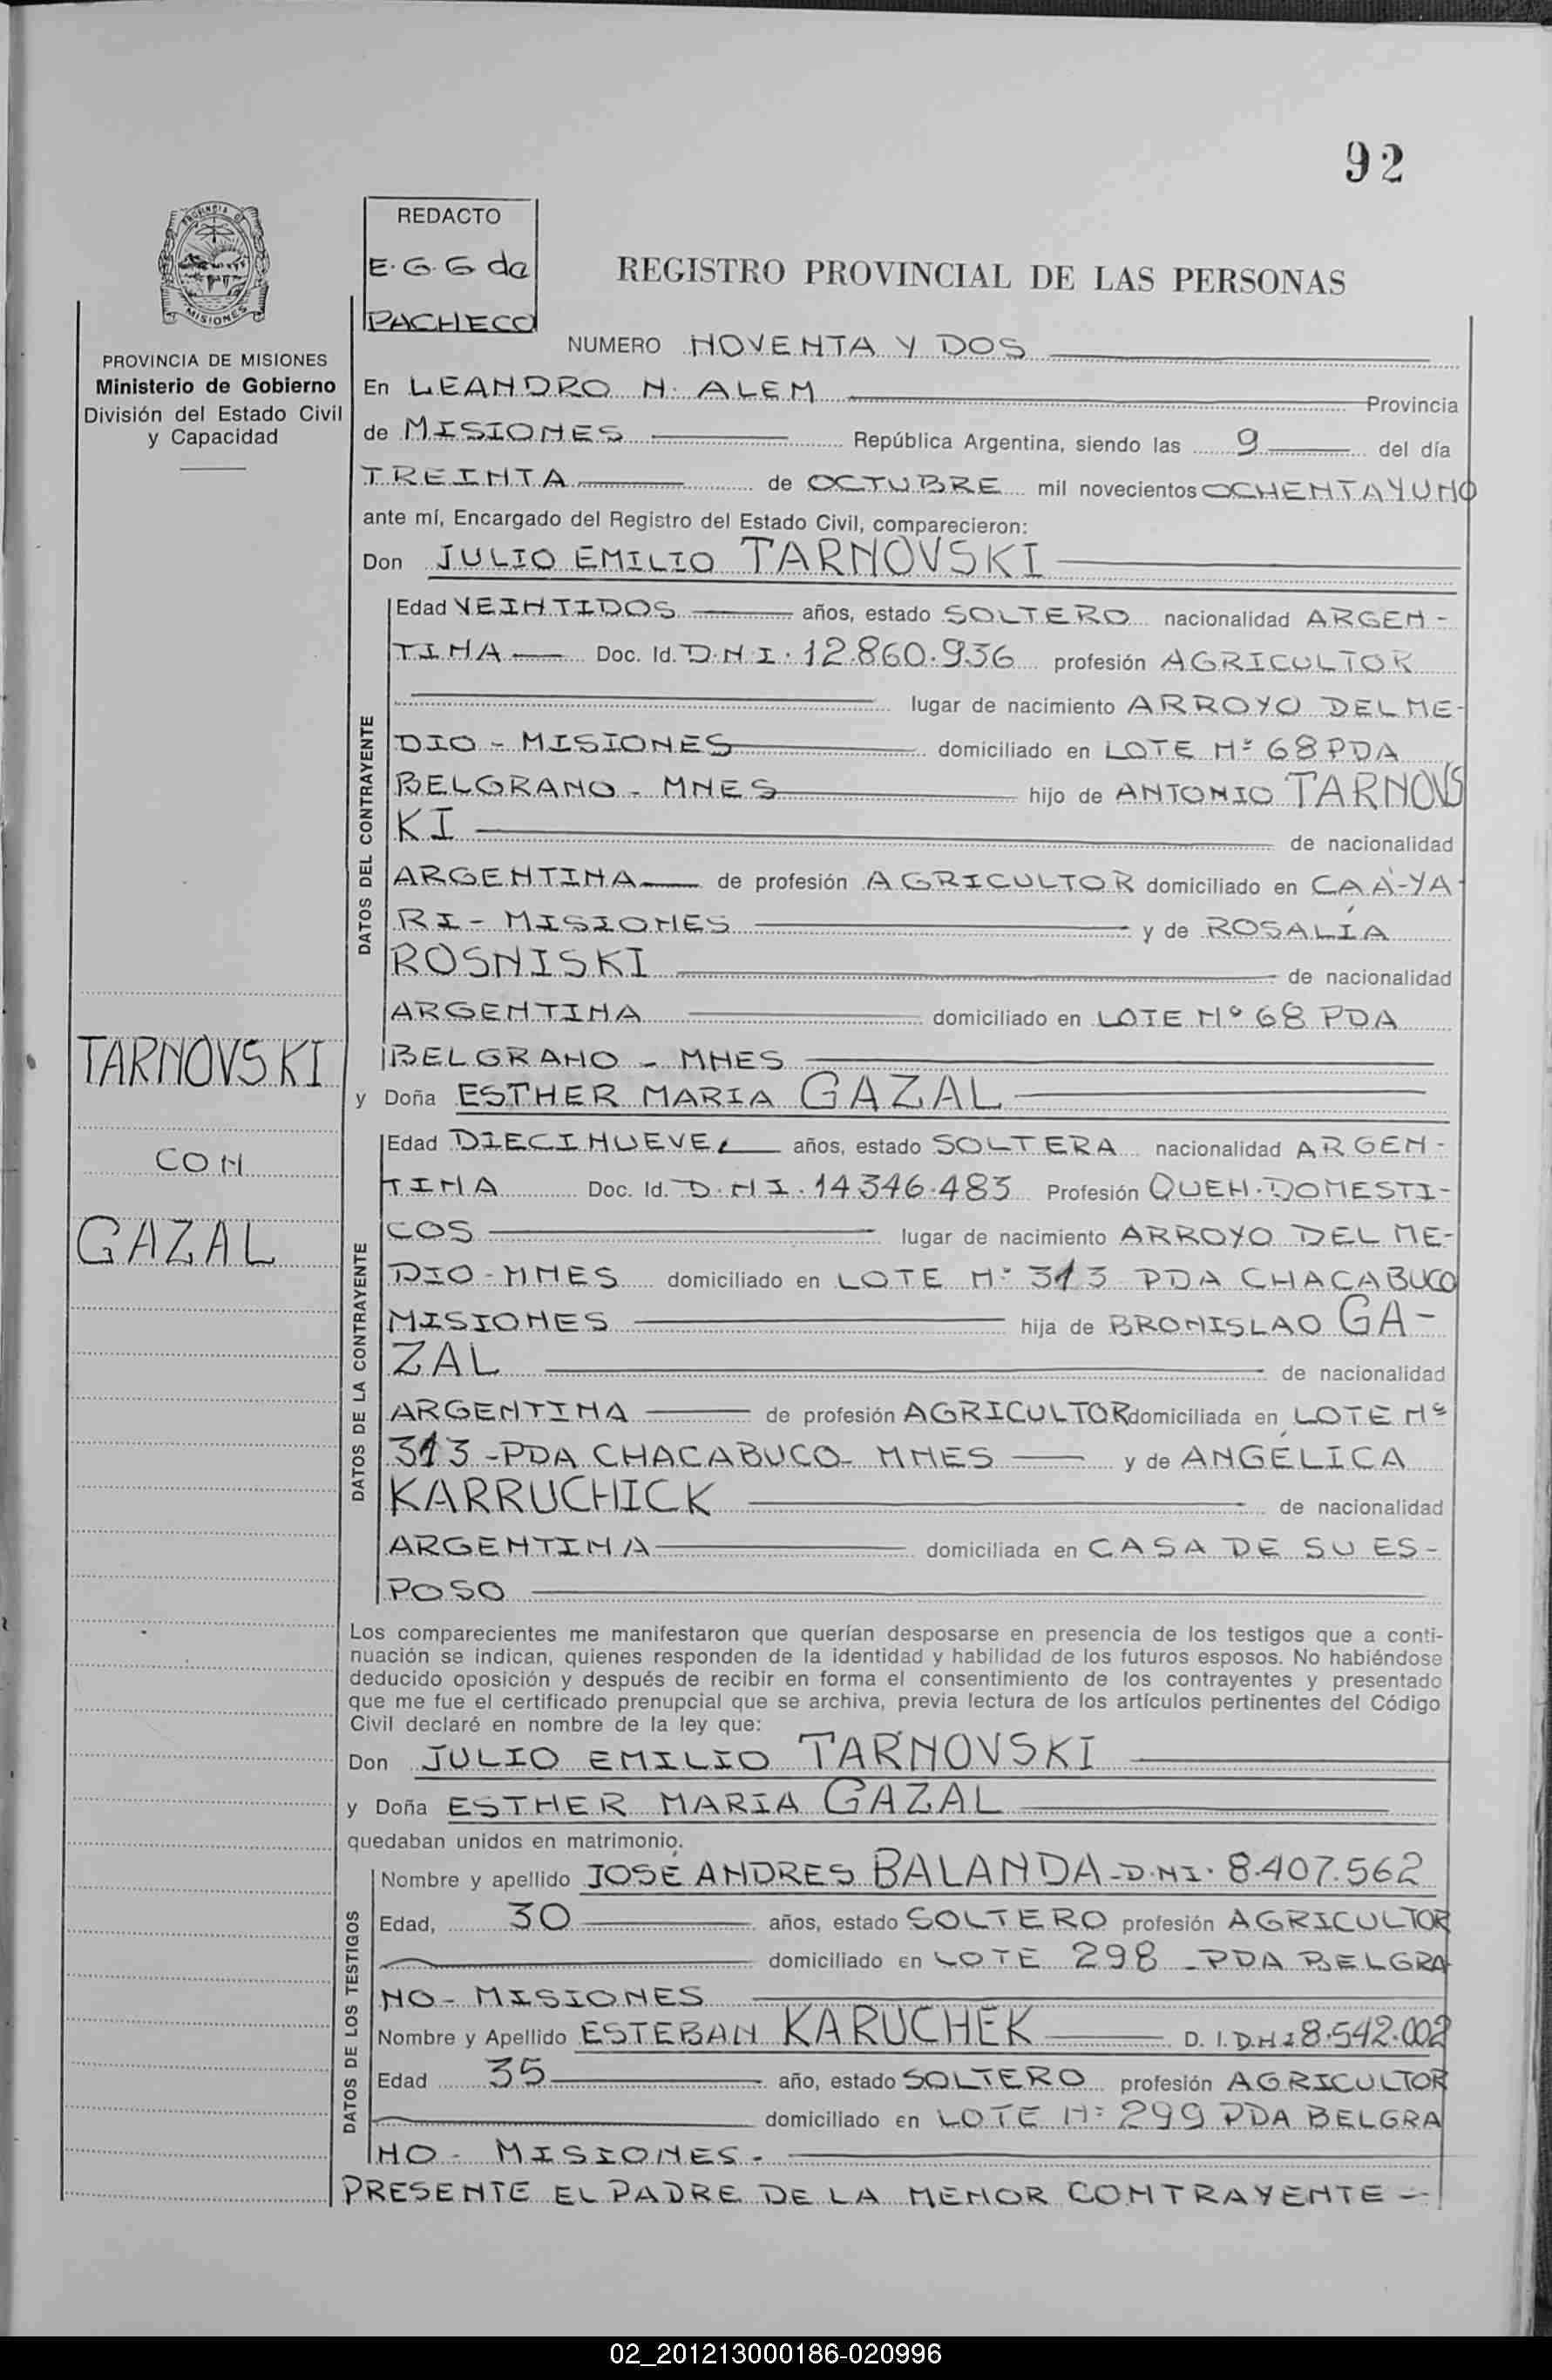 92
REDACTO
E.G.G de
PACHECO
REGISTRO PROVINCIAL DE LAS PERSONAS
PROVINCIA DE MISIONES
Ministerio de Gobierno
División del Estado Civil
y Capacidad
NUMERO NOVENTA Y DOS
En LEANDRO N. ALEM Provincia
de MISIONES República Argentina, siendo las 9 del día
TREINTA de OCTUBRE mil novecientos OCHENTA Y UNO
ante mí, Encargado del Registro del Estado Civil, comparecieron:
Don JULIO EMILIO TARNOVSKI
DATOS DEL CONTRAYENTE
Edad VEINTIDOS años, estado SOLTERO nacionalidad ARGEN-
TINA Doc. Id. D.N.I. 12.860.936 profesión AGRICULTOR
lugar de nacimiento ARROYO DEL ME-
DIO - MISIONES domiciliado en LOTE Nº 68 PDA
BELGRANO - MNES hijo de ANTONIO TARNOVS
KI de nacionalidad
ARGENTINA de profesión AGRICULTOR domiciliado en CAÁ-YA-
RI - MISIONES y de ROSALÍA
ROSNISKI de nacionalidad
ARGENTINA domiciliado en LOTE Nº 68 PDA
BELGRANO - MNES
TARNOVSKI
CON
GAZAL
y Doña ESTHER MARIA GAZAL
DATOS DE LA CONTRAYENTE
Edad DIECINUEVE años, estado SOLTERA nacionalidad ARGEN-
TINA Doc. Id. D.N.I. 14.346.483 Profesión QUEH. DOMESTI-
COS lugar de nacimiento ARROYO DEL ME-
DIO - MNES domiciliado en LOTE Nº 313 PDA CHACABUCO
MISIONES hija de BRONISLAO GA-
ZAL de nacionalidad
ARGENTINA de profesión AGRICULTOR domiciliada en LOTE Nº
313 - PDA CHACABUCO - MNES y de ANGÉLICA
KARRUCHICK de nacionalidad
ARGENTINA domiciliada en CASA DE SU ES-
POSO
Los comparecientes me manifestaron que querían desposarse en presencia de los testigos que a conti-
nuación se indican, quienes responden de la identidad y habilidad de los futuros esposos. No habiéndose
deducido oposición y después de recibir en forma el consentimiento de los contrayentes y presentado
que me fue el certificado prenupcial que se archiva, previa lectura de los artículos pertinentes del Código
Civil declaré en nombre de la ley que:
Don JULIO EMILIO TARNOVSKI
y Doña ESTHER MARIA GAZAL
quedaban unidos en matrimonio.
DATOS DE LOS TESTIGOS
Nombre y apellido JOSÉ ANDRES BALANDA - D.NI. 8.407.562
Edad, 30 años, estado SOLTERO profesión AGRICULTOR
domiciliado en LOTE 298 - PDA BELGRA
NO - MISIONES
Nombre y Apellido ESTEBAN KARUCHEK D. I. D.N.I 8.542.002
Edad 35 año, estado SOLTERO profesión AGRICULTOR
domiciliado en LOTE Nº 299 PDA BELGRA
NO - MISIONES.
PRESENTE EL PADRE DE LA MENOR CONTRAYENTE -
02_201213000186-020996